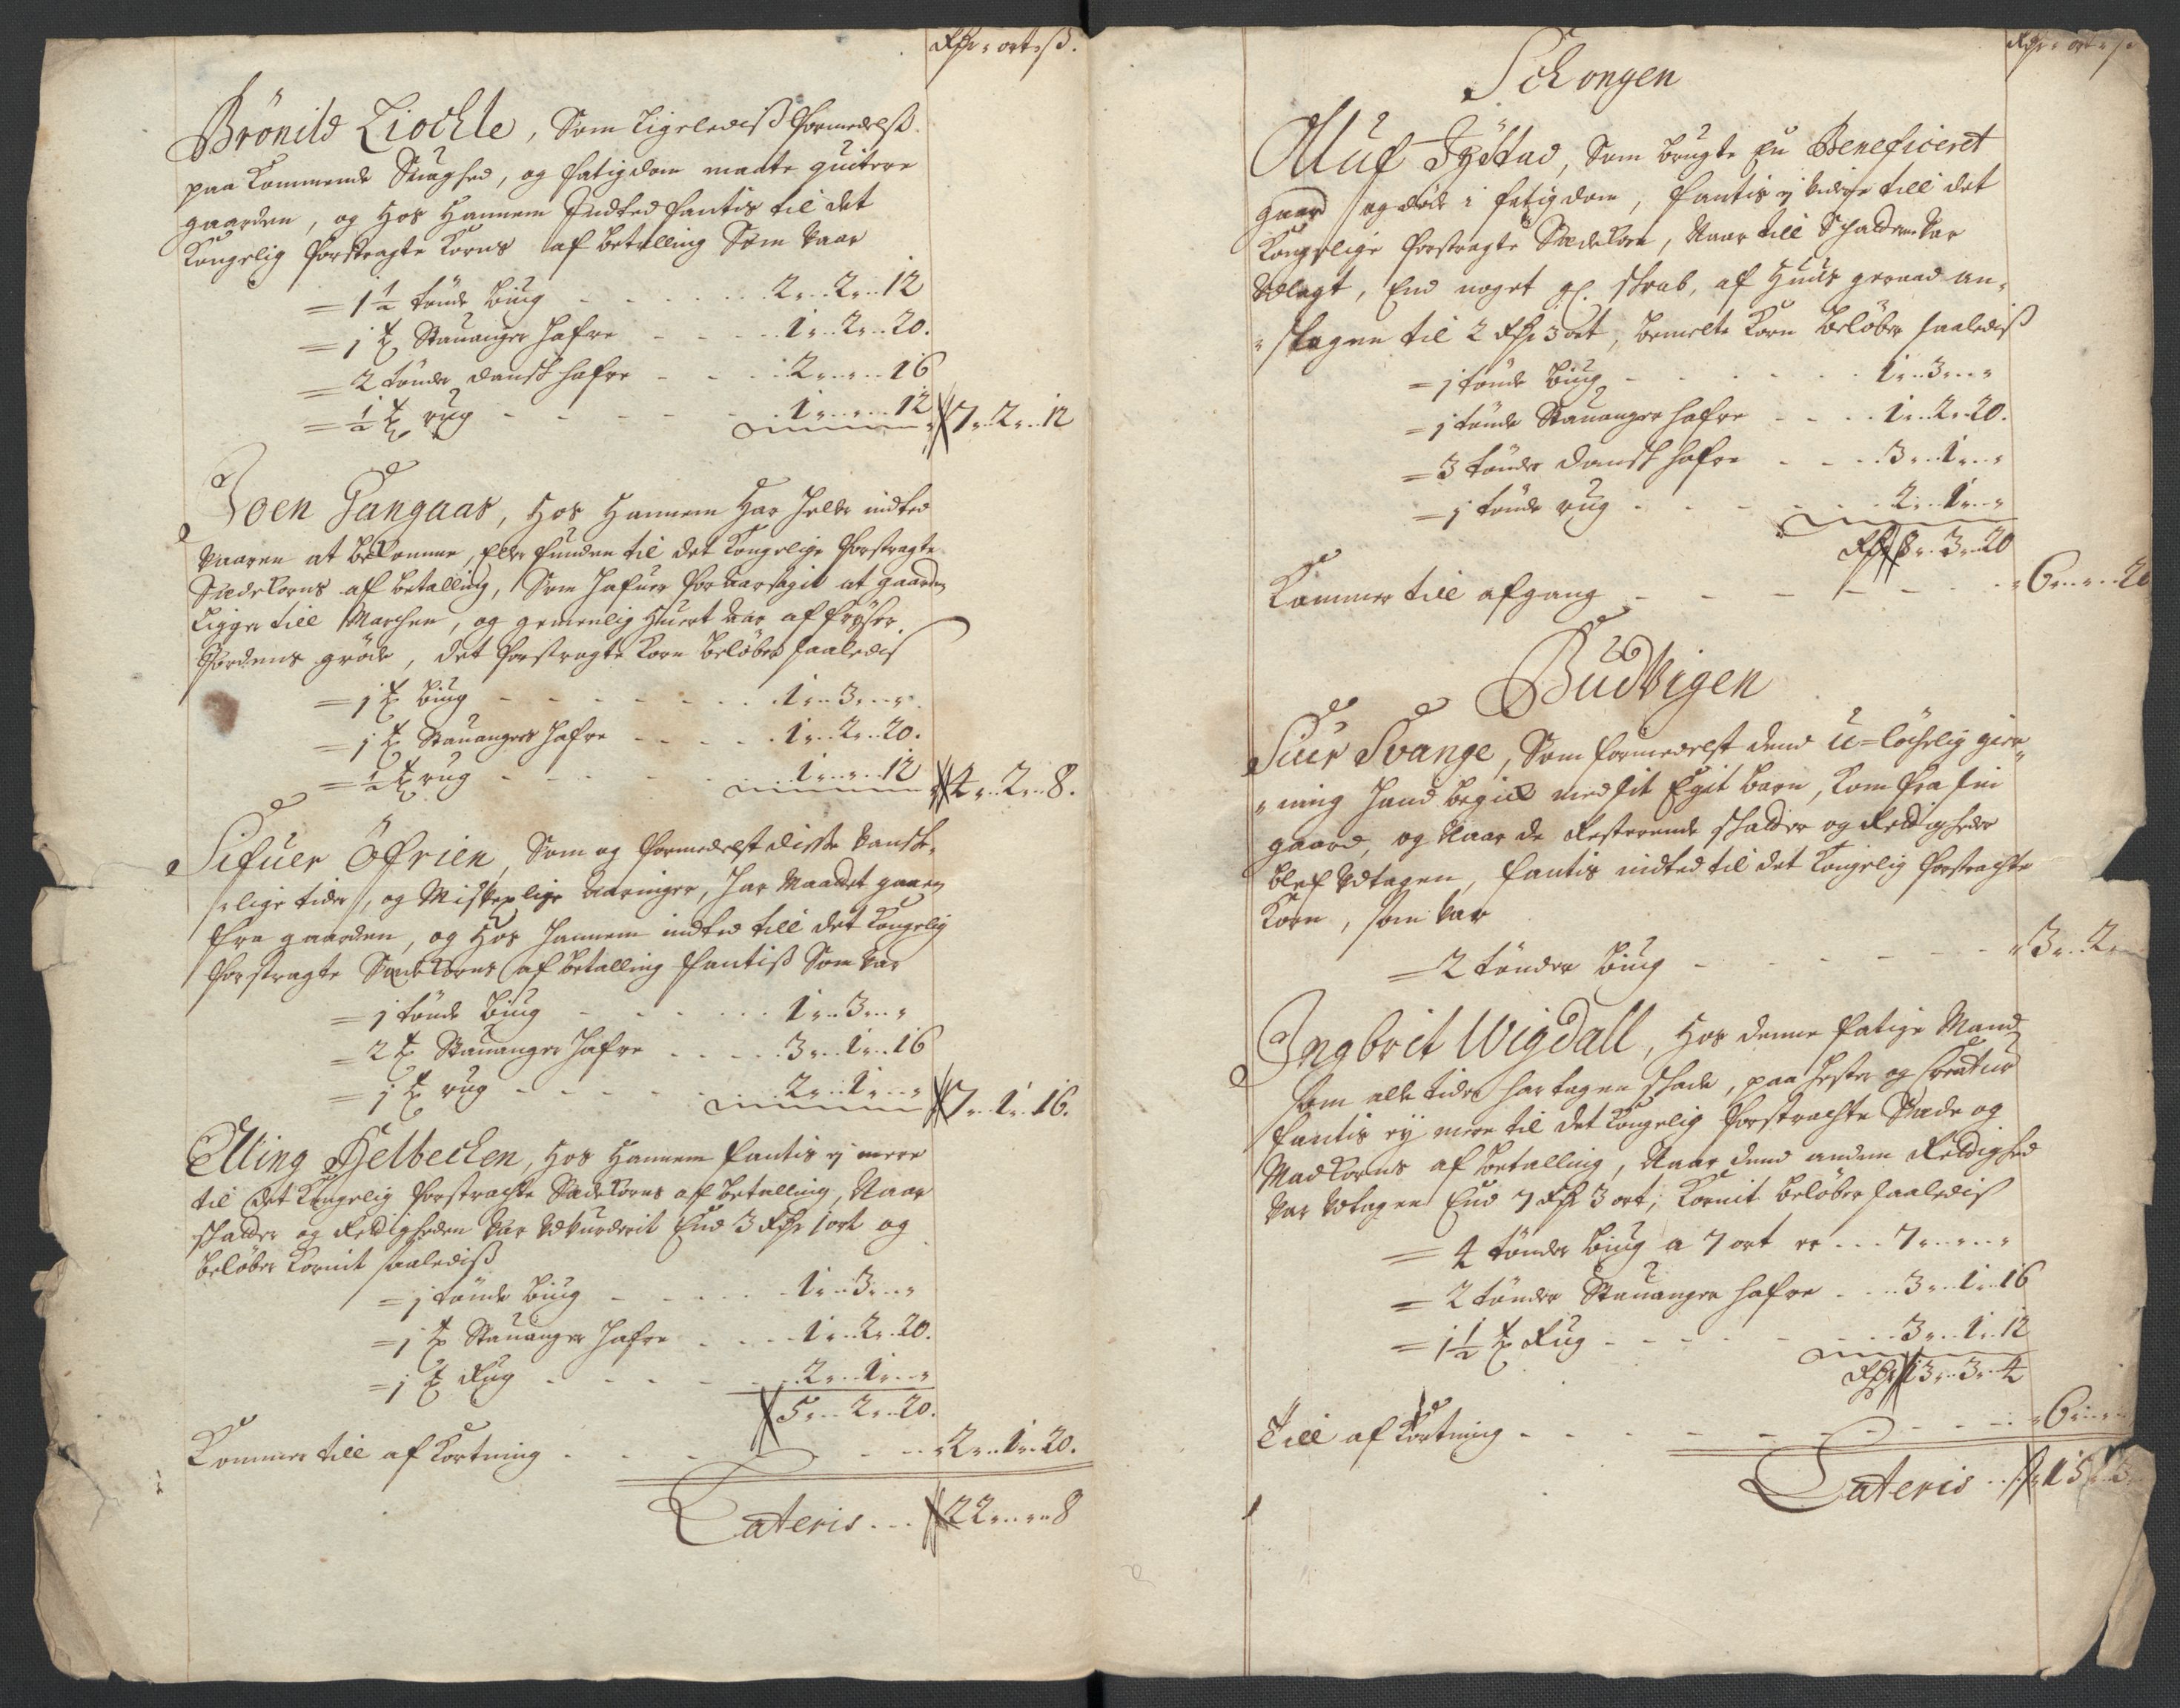 Rdr. ort. ß.
Brönild Liochle, Som ligeledis formedelst
paa kommende Suaghed, og fatigdom maate quitere
gaarden, og hos hannem Indted fantis til det
Kongelig forstragte Korns af betalling Som vaar
= 1½ tönde biug - - - 2. 2. 12
= 1 t Stauanger hafre - - - 1. 2. 20.
= 2 tönder dansk hafre - - - 2. " . 16
= ½ t rug - - - 1. " . 12 7. 2. 12
Joen Gangaas, hos hannem har heller indted
vaaren at bekomme, eller funden til det Kongelige forstragte
Sædekorns af betalling, Som hafuer foraarsagit at gaarden
ligger till Marchen, og gemenlig huert aar af fryser
Jordens gröde, det forstragte Korn belöber saaledis
= 1 t biug - - - 1. 3. "
= 1 t Stauangers hafre - - - 1. 2. 20.
= ½ t rug - - - 1. " . 12 4. 2. 8.
Sifuer Öfrien, Som og formedelst disse vanske-
lige tider, og Misvexlige aaringer, har Maadet gaaen
fra gaarden, og hos hannem indted till det Kongelig
forstragte Sædekorns af betalling fantiß Som var
= 1 tönde biug - - - 1. 3. "
= 2 t Stauanger hafre - - - 3. 1. 16
= 1 t rug - - - 2. 1. " 7. 1. 16.
Elling Helbechen, hos hannem fantis ej mere
til det Kongelig forstrachte Sædekorns af betalling, Naar
skatter og Retigheden var vdvurderit End 3 Rdr 1 ort og
belöber Kornit saalediß
= 1 tönde biug - - - 1. 3. "
= 1 t Stauanger hafre - - - 1. 2. 20.
= 1 t Rug - - - 2. 1. "
5. 2. 20.
Kommer till af Kortning - - - 2. 1. 20.
Lateris - - - 22. " . 8
Rdr. ort. ß
Schongen
Oluf, Som brugte En Beneficeret
gaard og döde i fatigdom, fantis ej videre till det
Kongelige forstragte Sædekorn, Naar till Skatterne var
vdlagt, End noget gl. skrab, af huus geraad an-
slagen til 2 Rdr 3 ort, bemelte Korn belöber saalediß
= 1 tönde biug - - - 1. 3. "
= 1 tönde Stauanger hafre - - - 1. 2. 20.
= 3 tönder dansk hafre - - - 3. 1. "
= 1 tönde rug - - - 2. 1. "
Rdr 8. 3. 20
Kommer till afgang - - - 6. " . 20
Budvigen
Siur Svange, Som formedelst dend u-löchelig gier-
ning hand begick med sit Eget barn, kom fra sin
gaard, og Naar de Resterende skatter og Retigheder
blef vdtagen, fantis indted til det Kongelig forstrachte
Korn, som var
= 2 tönder biug - - - 3. 2.
Ingbrit Wigdall, hos denne fatige Mand
som alle tider har tagen skade, paa hester og Creatur
fantis ej mere til det Kongelig forstrachte Sæde og
Madkorns af betalling, Naar dend anden Retighed
var vdtagen End 7 Rdr 3 ort, Kornit belöber saaledis
= 4 tönder biug a 7 ort er - - - 7. " . "
= 2 tönder Stauanger hafre - - - 3. 1. 16
= 1½ t Rug - - - 3. 1. 12
Rdr 13. 3. 4
Till af Kortning - - - 6.
Lateris - - - 15.